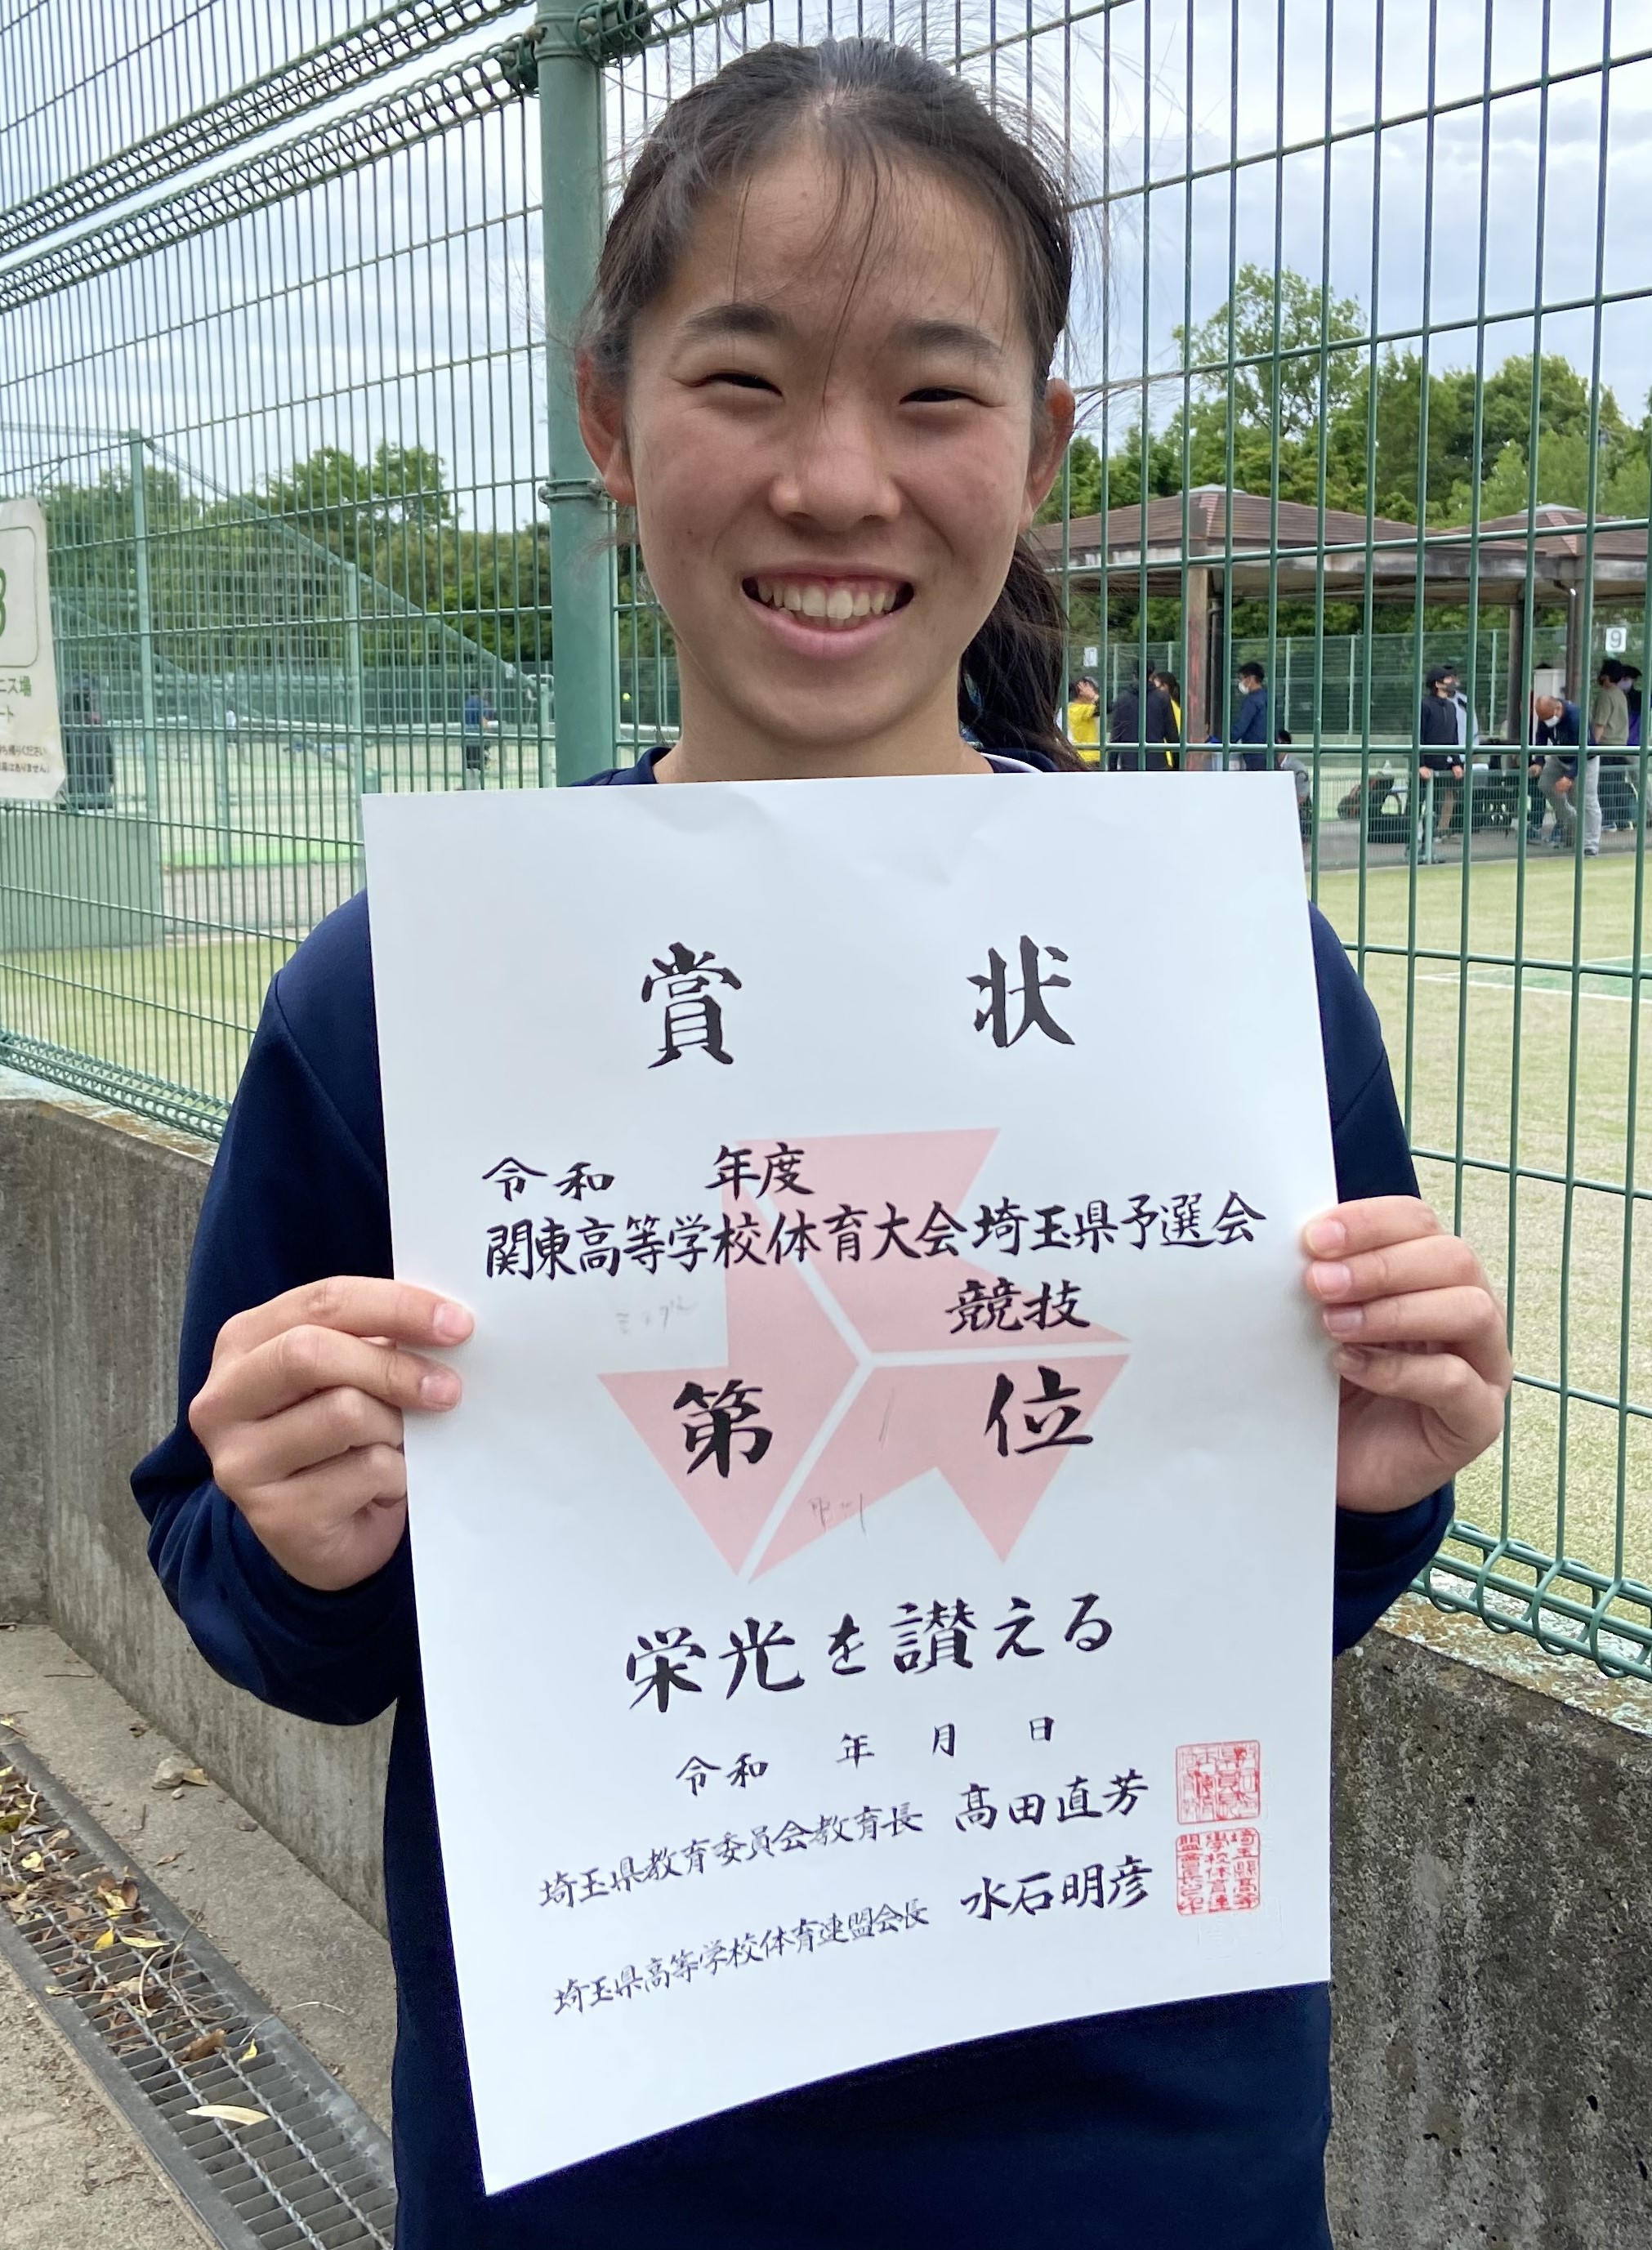 賞状
令和 年度
関東高等学校体育大会埼玉県予選会
競技
第 位
栄光を讃える
令和 年 月 日
埼玉県教育委員会教育長 髙田直芳
埼玉県高等学校体育連盟会長 水石明彦
9